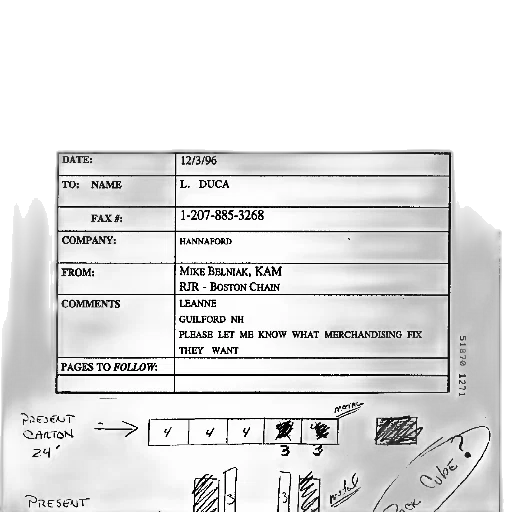 DATE: 12/3/96
TO: NAME L. DUCA
FAX #: 1-207-885-3268
COMPANY: HANNAFORD
FROM: MIKE BELNIAK, KAM
RJR - BOSTON CHAIN
COMMENTS LEANNE
GUILFORD NH
PLEASE LET ME KNOW WHAT MERCHANDISING FIX
THEY WANT
PAGES TO FOLLOW:
51870 1271
METAL
PRESENT
CARTON
24'
4 4 4
3 3
PACK CUBE?
PRESENT
3 3
metal